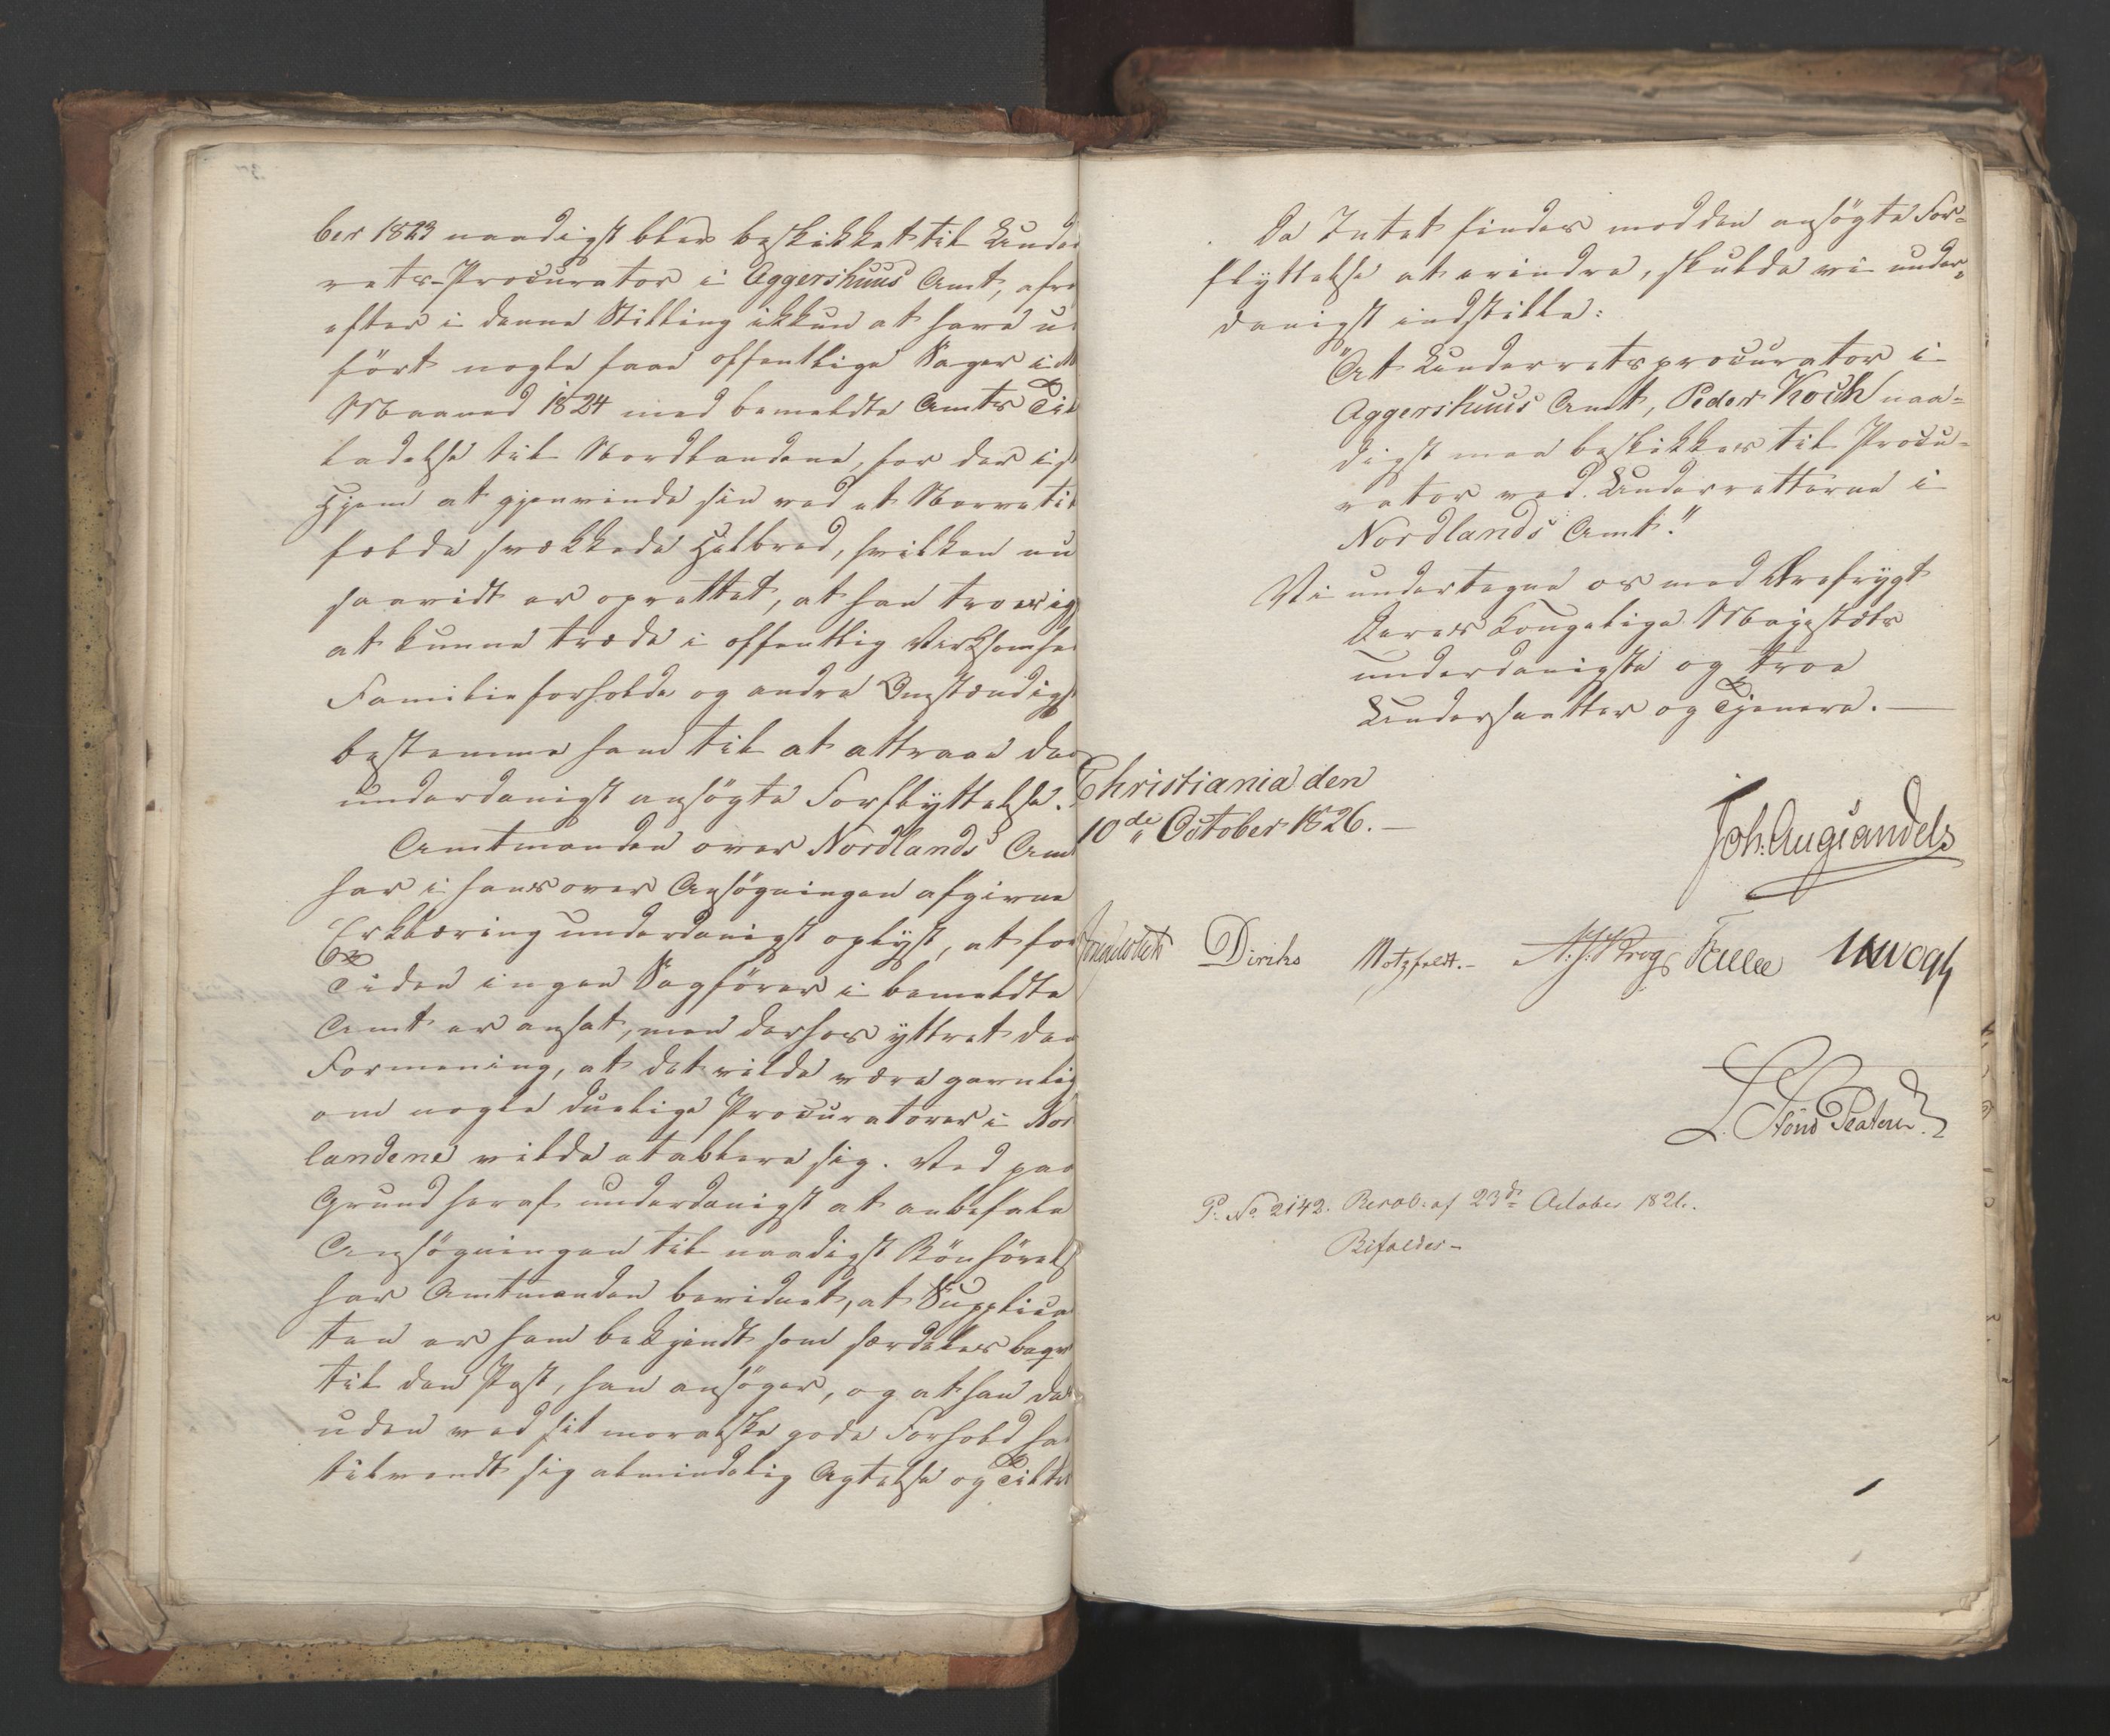 ber 1823 naadigst blev beskikket til Under
rets-Procurator i Aggershuus Amt,
efter i denne Stilling ikkun at have u
ført nogle faae offentlige Sager i
Maaned 1824 med bemeldte Amts Til
ladelse til Nordlandene, for der i
Hjem at gjenvinde sin ved et Nervetil
fælde svækkede Helbred, hvilken nu
saavidt er oprettet, at han troer sig
at kunne træde i offentlig Virksomhe
Familieforholde og andre Omstændigh
bestemme ham til at attraae den
underdanigst ansøgte Forflyttelse.
Amtmanden over Nordlands Amt
har i hans over Ansøgningen afgivne
Erklæring underdanigst oplyst, at for
Tiden ingen Sagfører i bemeldte
Amt er ansat, men derhos yttret den
Formening, at det vilde være gavnlig
om nogle duelige Procuratorer i Nor
landene vilde etablere sig. Ved paa
Grund heraf underdanigst at anbefale
Ansøgningen til naadigst Bønhørels
har Amtmanden bevidnet, at Supplican
ten er ham bekjendt som særdeles beqv
til den Post, han ansøger, og at han de
uden ved sit moralske gode Forhold ha
tilvendt sig almindelig Agtelse og Tillid
Da Intet findes mod den ansøgte For=
flyttelse at erindre, skulde vi under=
danigst indstille:
"At Underretsprocurator i
Aggershuus Amt, Peder Koch naa=
digst maa beskikkes til Procu=
rator ved Underretterne i
Nordlands Amt."
Vi undertegne os med Ærefrygt
Deres Kongelige Majestæts
underdanigste og troe
Undersaatter og Tjenere.—
Christiania den
10de October 1826.—
Joh: Aug: Sandels
Sommerhielm Diriks Motzfeldt.— N. J. Krog Fasting? JH Vogt
L. Stoud Platou
P. No. 2142. Resol. af 23de October 1826.
Bifaldes—